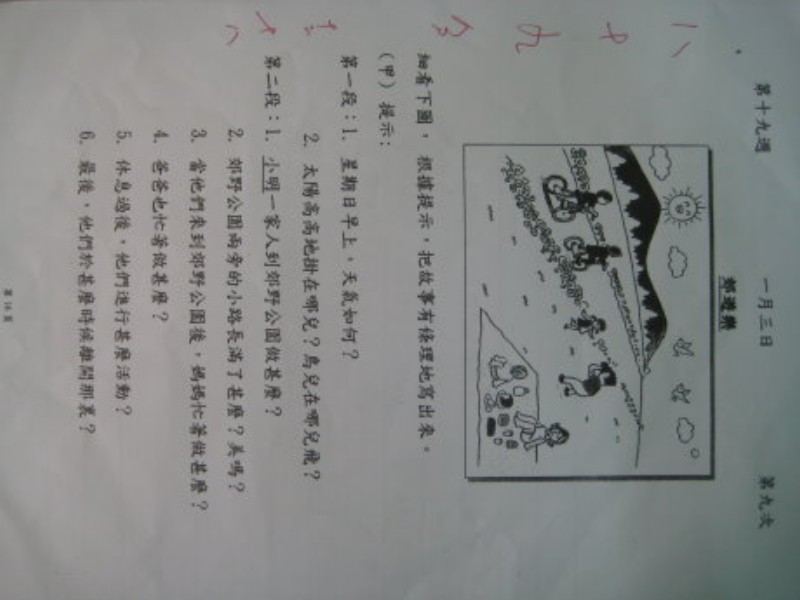 第十九週 一月三日 第九次
郊遊樂
細看下圖，根據提示，把故事有條理地寫出來。
（甲）提示：
第一段：1. 星期日早上，天氣如何？
2. 太陽高高地掛在哪兒？鳥兒在哪兒飛？
第二段：1. 小明一家人到郊野公園做甚麼？
2. 郊野公園兩旁的小路長滿了甚麼？美嗎？
3. 當他們來到郊野公園後，媽媽忙著做甚麼？
4. 爸爸也忙著做甚麼？
5. 休息過後，他們進行甚麼活動？
6. 最後，他們於甚麼時候離開那裏？